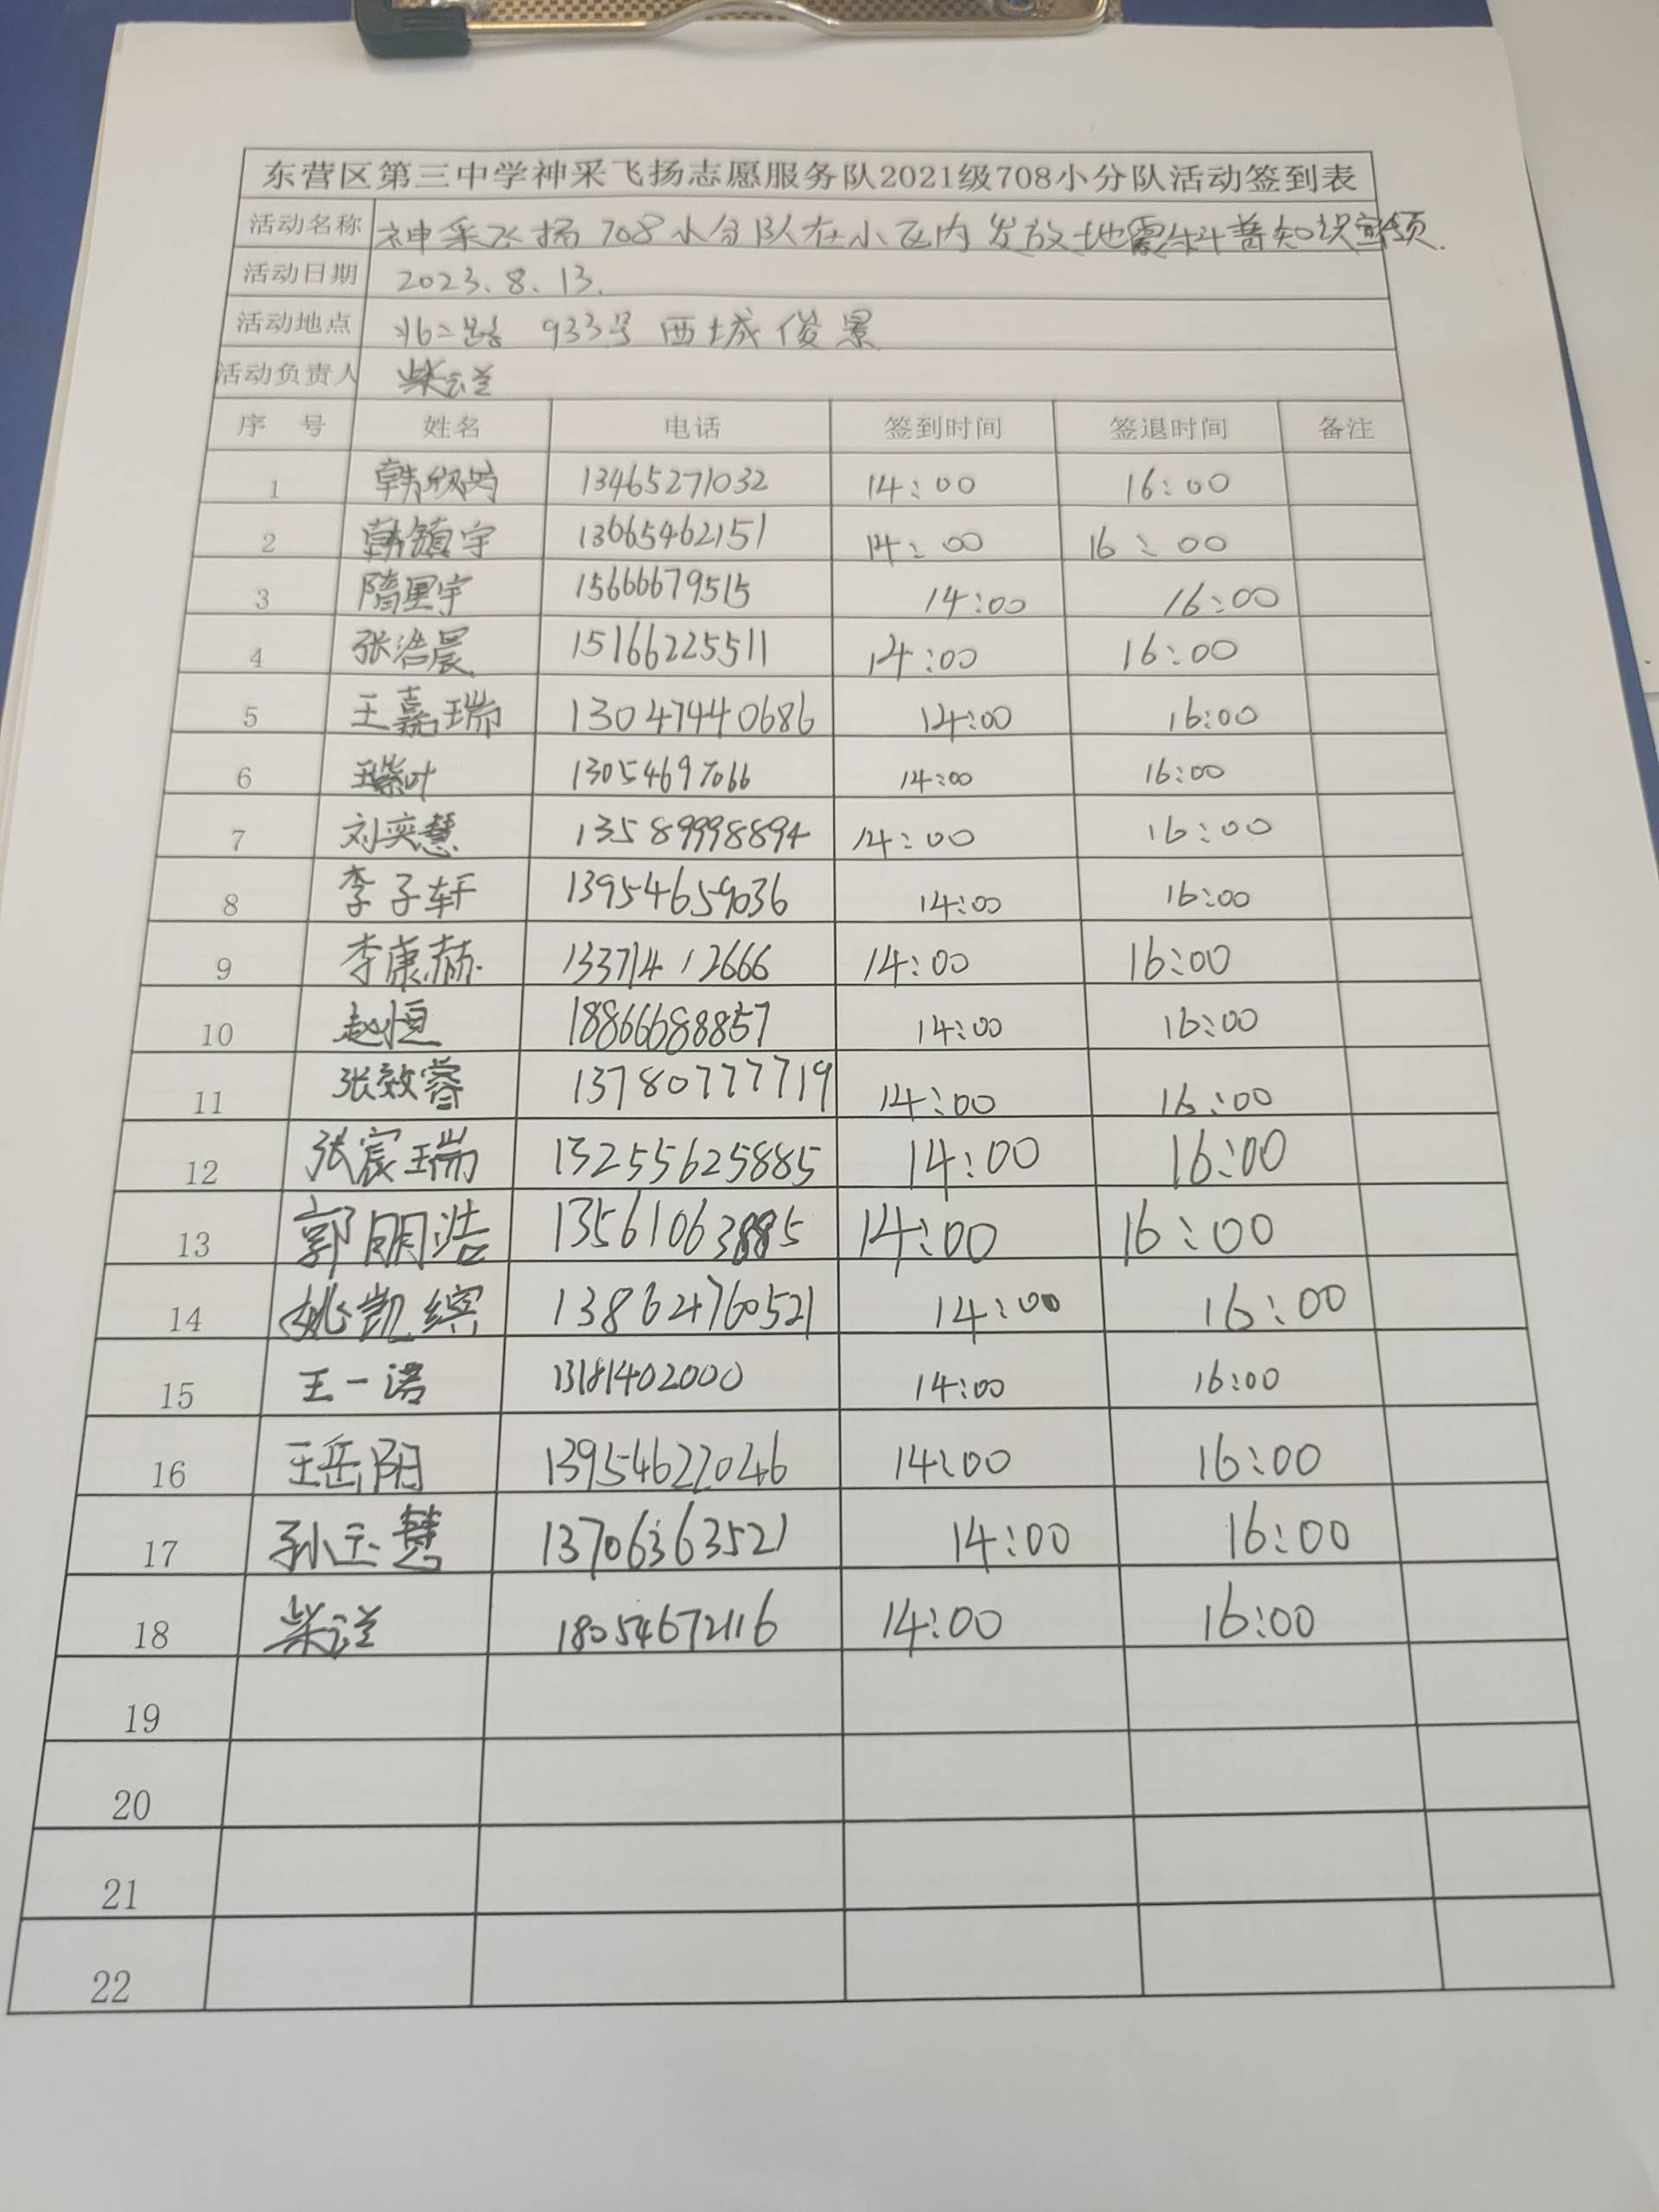 东营区第三中学神采飞扬志愿服务队2021级708小分队活动签到表
活动名称 神采飞扬708小分队在小区内发放地震科普知识
活动日期 2023.8.13.
活动地点 北二路 933号西城俊景
活动负责人 柴云
序 号 姓名 电话 签到时间 签退时间 备注
1 韩欣 13465271032 14:00 16:00
2 韩镇宇 13065462151 14:00 16:00
3 隋里宇 15666679515 14:00 16:00
4 张浩晨 15166225511 14:00 16:00
5 王嘉瑞 13047440686 14:00 16:00
6 王紫叶 13054697066 14:00 16:00
7 刘奕慧 13589998894 14:00 16:00
8 李子轩 13954659036 14:00 16:00
9 李康赫 13371412666 14:00 16:00
10 赵恒 18866688857 14:00 16:00
11 张效蓉 13780777719 14:00 16:00
12 张宸瑞 13255625885 14:00 16:00
13 郭明浩 13561063885 14:00 16:00
14 姚凯缤 13862476052​1 14:00 16:00
15 王一诺 13181402000 14:00 16:00
16 王岳阳 13954622046 14:00 16:00
17 孙玉慧 13706363521 14:00 16:00
18 柴云 18054672116 14:00 16:00
19
20
21
22